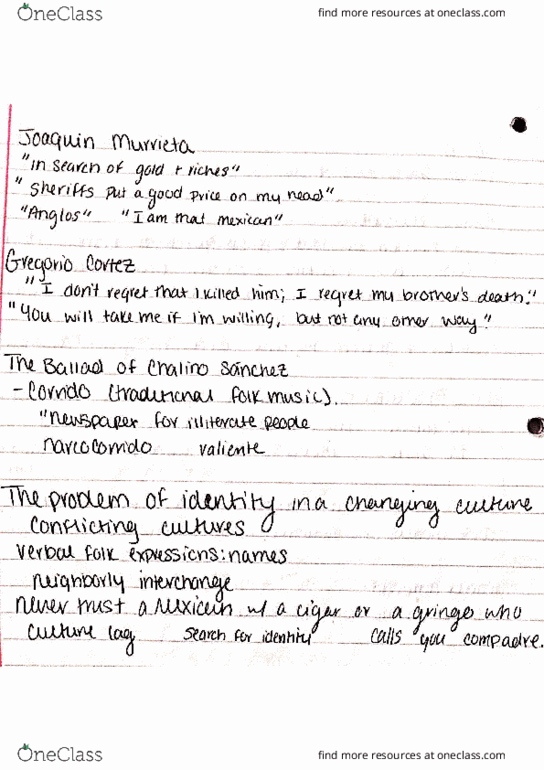 OneClass find more resources at oneclass.com
Joaquin Murrieta
"in search of gold + riches"
"Sheriffs put a good price on my head"
"Anglos" "I am that mexican"
Gregorio Cortez
"I don't regret that I killed him; I regret my brother's death."
"You will take me if I'm willing, but not any other way."
The Ballad of Chalino Sánchez
- Corrido (traditional folk music).
"newspaper for illiterate people
narcocorrido valiente
The problem of identity in a changing culture
Conflicting cultures
verbal folk expressions: names
neighborly interchange
never trust a Mexican w/ a cigar or a gringo who
culture lag search for identity calls you compadre.
OneClass find more resources at oneclass.com